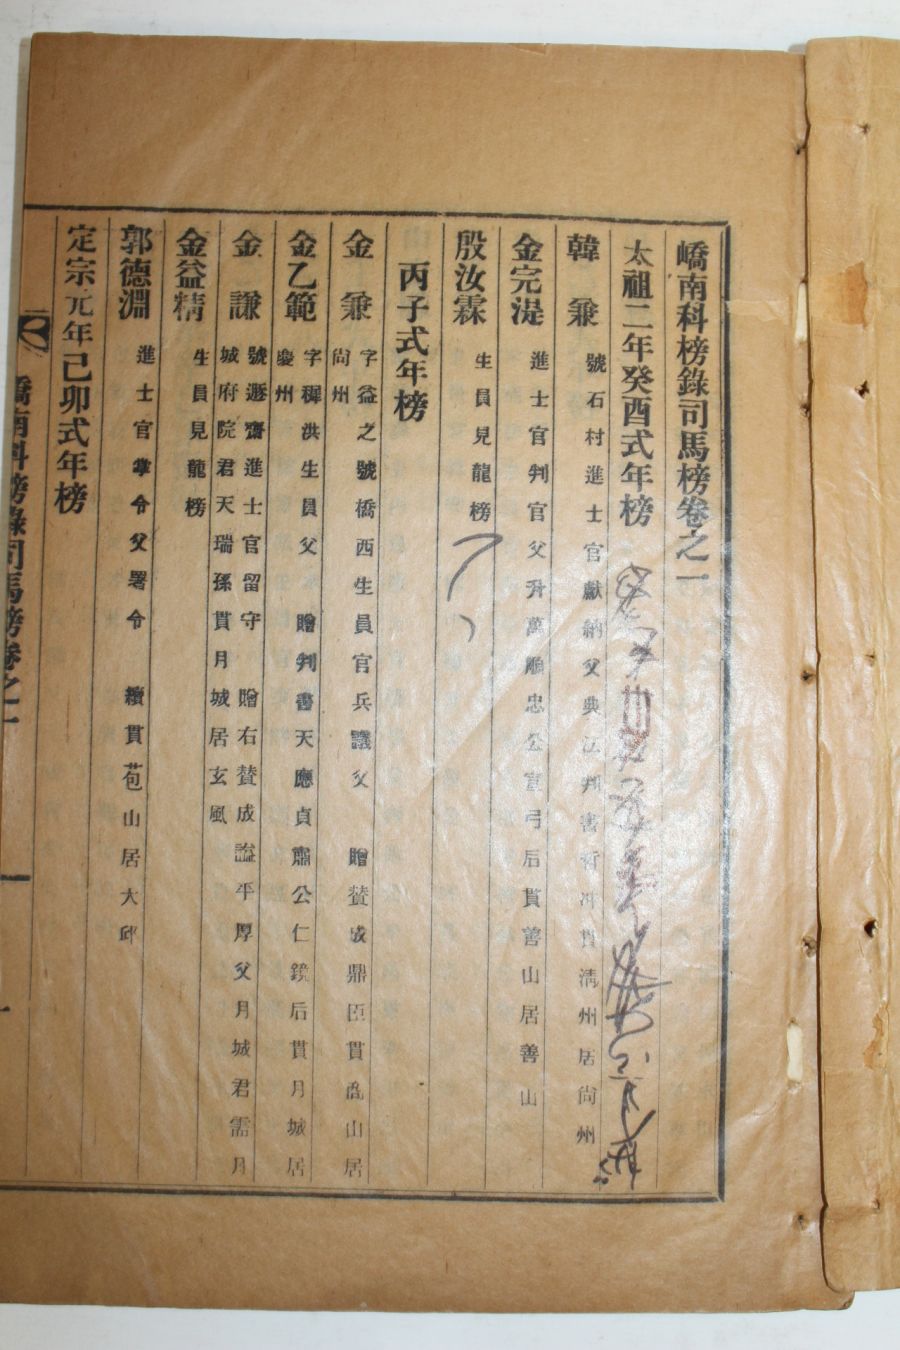 嶠南科榜錄司馬榜卷之一
太祖二年癸酉式年榜
韓兼 號石村進士官獻納父典工判書 貫淸州居尙州
金完湜 進士官判官父升萬順忠公宣弓后貫善山居善山
殷汝霖 生員見龍榜
丙子式年榜
金兼 字益之號橋西生員官兵議父 贈賛成鼎臣貫 山居
尙州
金乙範 字穉洪生員父 贈判書天應貞肅公仁鏡后貫月城居
慶州
金謙 號遯齋進士官留守 贈右賛成謚平厚父月城君需月
城府院君天瑞孫貫月城居玄風
金益精 生員見龍榜
郭德淵 進士官掌令父署令 續貫苞山居大邱
定宗元年己卯式年榜
嶠南科榜錄司馬榜卷之一